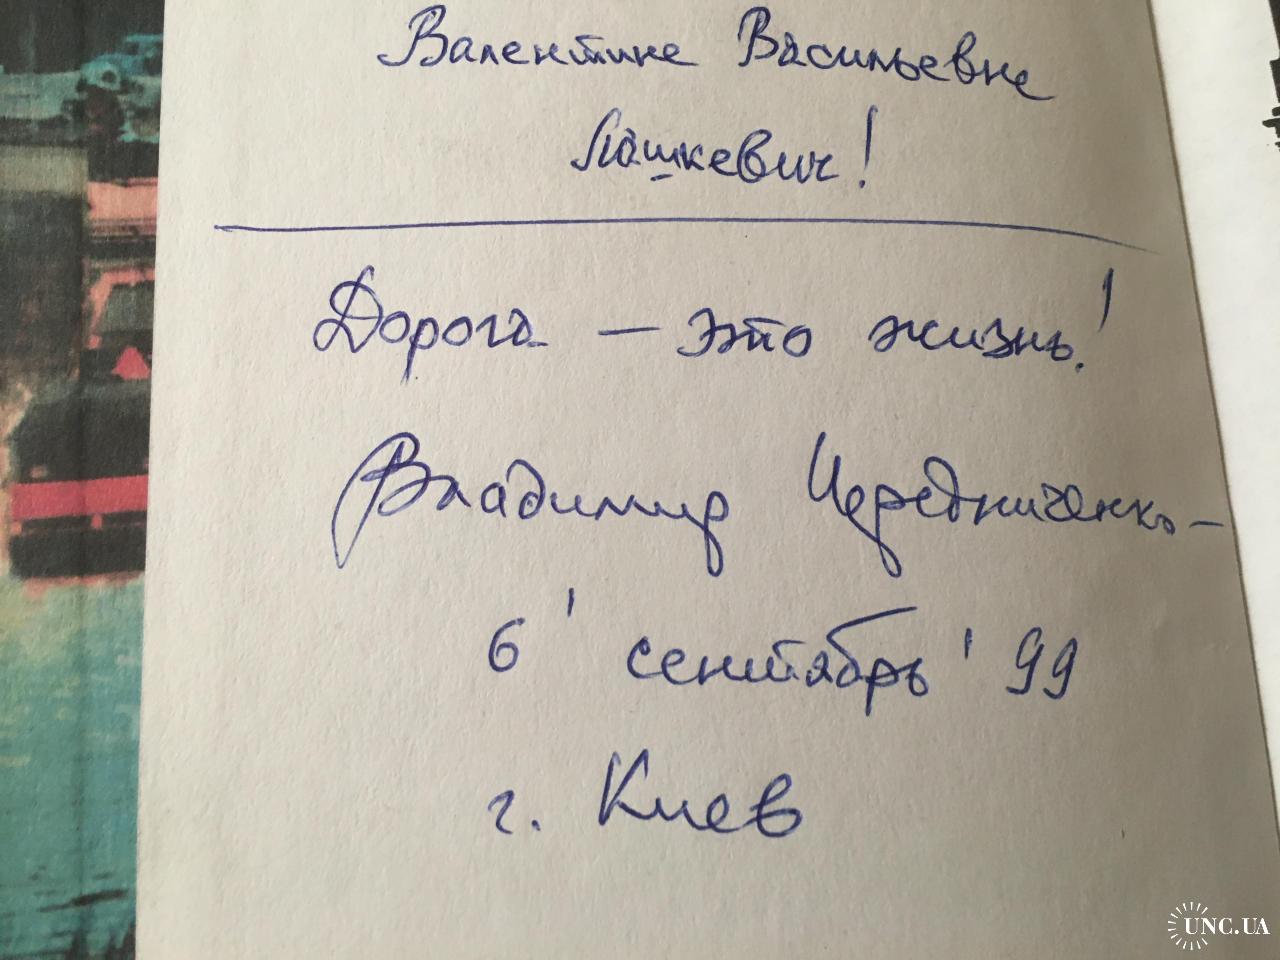 Валентине Васильевне
Лашкевич!
Дорога — это жизнь!
Владимир Чередниченко –
6' сентябрь' 99
г. Киев
UNC.UA